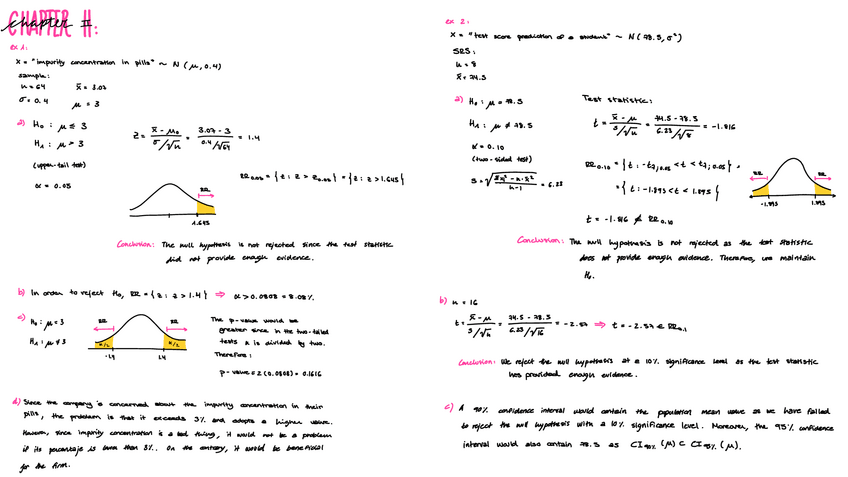 CHAPTER 11:
chapter 11
ex 1:
X = "impurity concentration in pills" ~ N (μ, 0.4)
sample:
n = 64 x̄ = 3.07
σ = 0.4 μ = 3
a) H₀ : μ ≤ 3
H₁ : μ > 3
(upper-tail test)
α = 0.05
Z = (x̄ - μ₀)/(σ/√n) = (3.07 - 3)/(0.4/√64) = 1.4
RR₀.₀₅ = { z : z > z₀.₀₅ } = { z : z > 1.645 }
RR
1.645
Conclusion: The null hypothesis is not rejected since the test statistic
did not provide enough evidence.
b) In order to reject H₀, RR = { z : z > 1.4 } ⇒ α > 0.0808 = 8.08%.
c) H₀ : μ = 3
H₁ : μ ≠ 3
RR RR
α/2 α/2
-1.4 1.4
The p-value would be
greater since in the two-tailed
tests α is divided by two.
Therefore:
p-value = 2 (0.0808) = 0.1616
d) Since the company is concerned about the impurity concentration in their
pills, the problem is that it exceeds 3% and adopts a higher value.
However, since impurity concentration is a bad thing, it would not be a problem
if its percentage is lower than 3%. On the contrary, it would be beneficial
for the firm.
ex 2:
X = "test score prediction of a students" ~ N ( 78.5, σ²)
SRS:
n = 8
x̄ = 74.5
a) H₀ : μ = 78.5
H₁ : μ ≠ 78.5
α = 0.10
(two-sided test)
S = √((Σxᵢ² - n·x̄²)/(n-1)) = 6.23
Test statistic:
t = (x̄ - μ)/(s/√n) = (74.5 - 78.5)/(6.23/√8) = -1.816
RR₀.₁₀ = { t : -t₇;₀.₀₅ < t < t₇;₀.₀₅ }
= { t : -1.895 < t < 1.895 }
RR RR
-1.895 1.895
t = -1.816 ∉ RR₀.₁₀
Conclusion: The null hypothesis is not rejected as the test statistic
does not provide enough evidence. Therefore, we maintain
H₀.
b) n = 16
t = (x̄ - μ)/(s/√n) = (74.5 - 78.5)/(6.23/√16) = -2.57 ⇒ t = -2.57 ∈ RR₀.₁
Conclusion: We reject the null hypothesis at a 10% significance level as the test statistic
has provided enough evidence.
c) A 90% confidence interval would contain the population mean value as we have failed
to reject the null hypothesis with a 10% significance level. Moreover, the 95% confidence
interval would also contain 78.5 as CI₉₀% (μ) ⊂ CI₉₅% (μ).